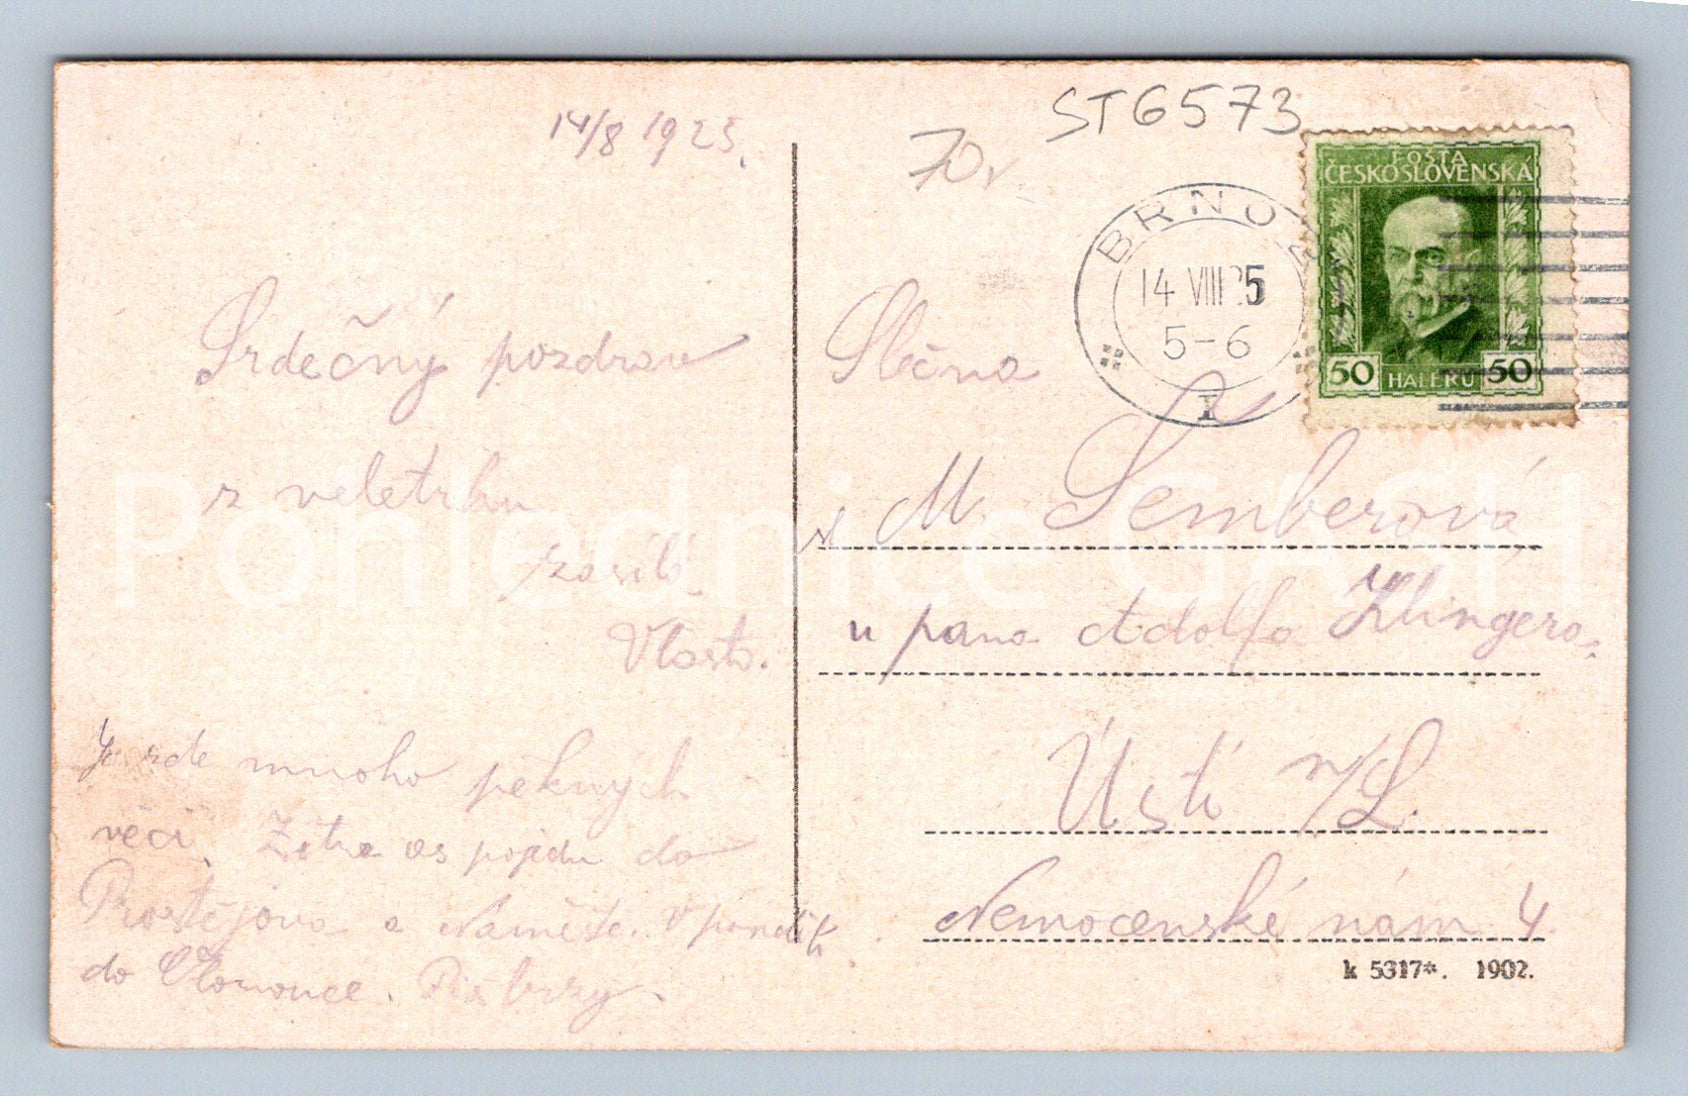 14/8 1925.
70,-
ST6573
BRNO 2
14 VIII 25
5-6
I
POŠTA
ČESKOSLOVENSKÁ
50 HALÉŘŮ 50
Srdečný pozdrav
z veletrhu
zasílá
Vlasta.
Je zde mnoho pěkných
věcí. Zítra as pojedu do
Prostějova a Náměště. V pondělí
do Olomouce. Piš brzy.
Slečna
M. Šemberová
u pana Adolfa Klingera
Ústí n/L.
Nemocenské nám 4.
k 5317*. 1902.
Pohlednice GASH